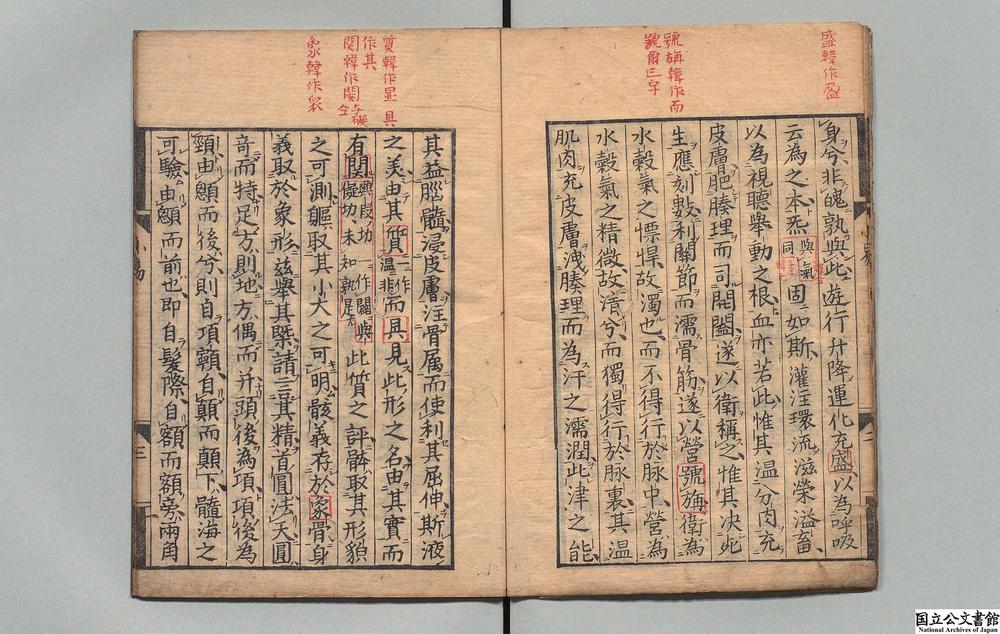 盛韓作盈
號旃韓作而
號爾三字
身兮非魄孰與此遊行升降運化充盛以為呼吸
云為之本炁與氣同固如斯灌注環流滋榮溢畜
以為視聽舉動之根血亦若此惟其温分肉充
皮膚肥腠理而司開闔遂以衛稱之惟其决此
生應刻數利關節而濡骨筋遂以營號旃衛為
水穀氣之慓悍故濁也而不得行於脉中營為
水穀氣之精微故淸兮而獨得行於脉裏其温
肌肉充皮膚洩腠理而為汗之濡潤此津之能
質韓作
具
作其
関韓作閡
象韓作衆
其益腦髓浸皮膚注骨属而使利其屈伸斯液
之美由其質一作温非而具見此形之名由其實而
有関興叚切一作閡礙切未知孰是此質之評骵取其形貌
之可測軀取其小大之可明骸義存於象骨身
義取於象形兹舉其槩請言其精首圓法天圓
竒而特足方則地方偶而并頭後為項項後為
頸由顖而後兮則自項顙自顛而顛下髓海之
可驗由顖而前也即自髪際自額而額旁兩角
二
三
国立公文書館
National Archives of Japan